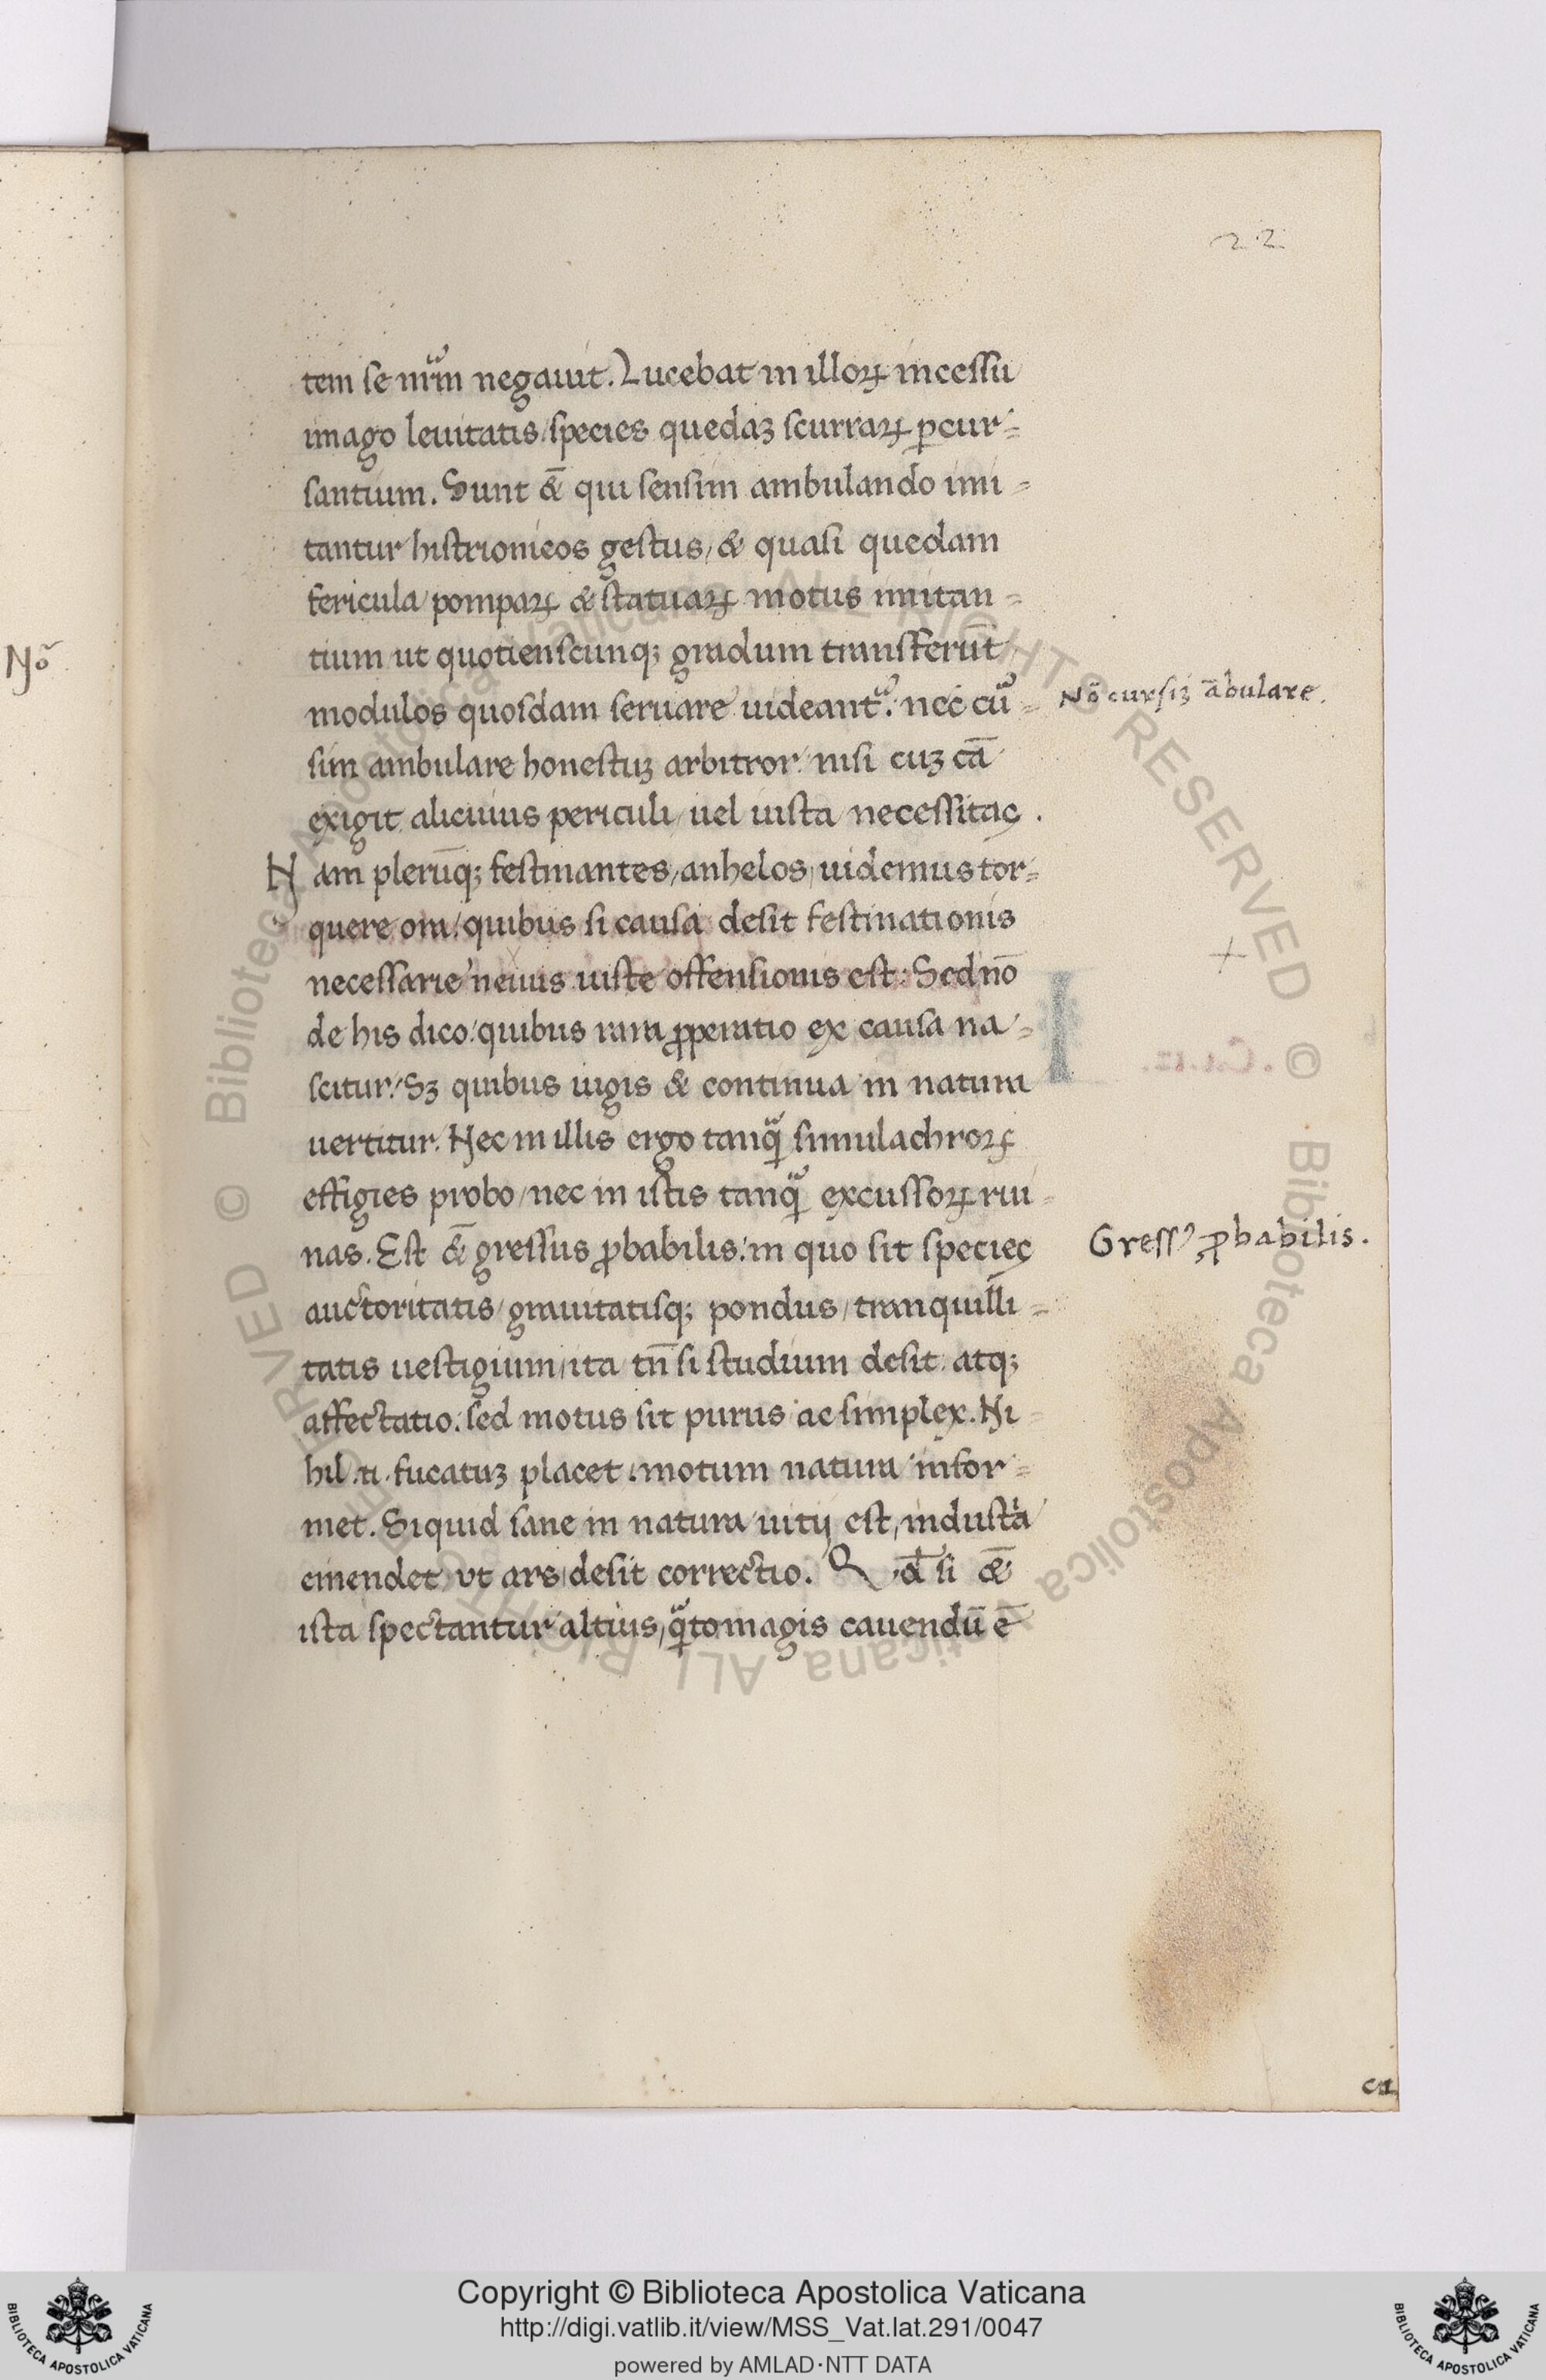 22
tem se nr̃m negauit. Lucebat in illoꝝ incessu
imago leuitatis / species quedaꝫ scurraꝝ ꝑcur=
santium. Sunt &̄ qui sensim ambulando imi=
tantur histrionicos gestus, & quasi quedam
fericula pompaꝝ & statuaꝝ motus imitan=
tium ut quotienscunqꝫ gradum transferūt
modulos quosdam seruare uideant᷑. nec cũ=
Nõ cursiꝫ ābulare.
sim ambulare honestuꝫ arbitror nisi cuꝫ cā
exigit alicuius periculi / uel iusta necessitas.
Nam plerūqꝫ festinantes / anhelos uidemus tor=
quere ora / quibus si causa desit festinationis
necessarie neuus iuste offensionis est: Sed nō
de his dico / quibus rara ꝓperatio ex causa na=
scitur / Sꝫ quibus iugis & continua in natura
uertitur. Nec in illis ergo tanq̃ simulachroꝝ
effigies probo / nec in istis tanq̃ excussoꝝ rui=
nas. Est &̄ gressus ꝓbabilis: in quo sit species
Gressꝰ ꝓbabilis.
auctoritatis / grauitatisqꝫ pondus / tranquilli=
tatis uestigium / ita tn̄ si studium desit atqꝫ
affectatio. sed motus sit purus ac simplex. Ni=
hil .n. fucatuꝫ placet. motum natura infor=
met. Siquid sane in natura uitij est, industa
emendet vt ars desit correctio. Qđ si &̄
ista spectantur altius, q̃to magis cauendū ē
Nõ
Copyright © Biblioteca Apostolica Vaticana
http://digi.vatlib.it/view/MSS_Vat.lat.291/0047
powered by AMLAD·NTT DATA
BIBLIOTECA APOSTOLICA VATICANA
BIBLIOTECA APOSTOLICA VATICANA
© Biblioteca Apostolica Vaticana ALL RIGHTS RESERVED © Biblioteca Apostolica Vaticana ALL RIGHTS RESERVED